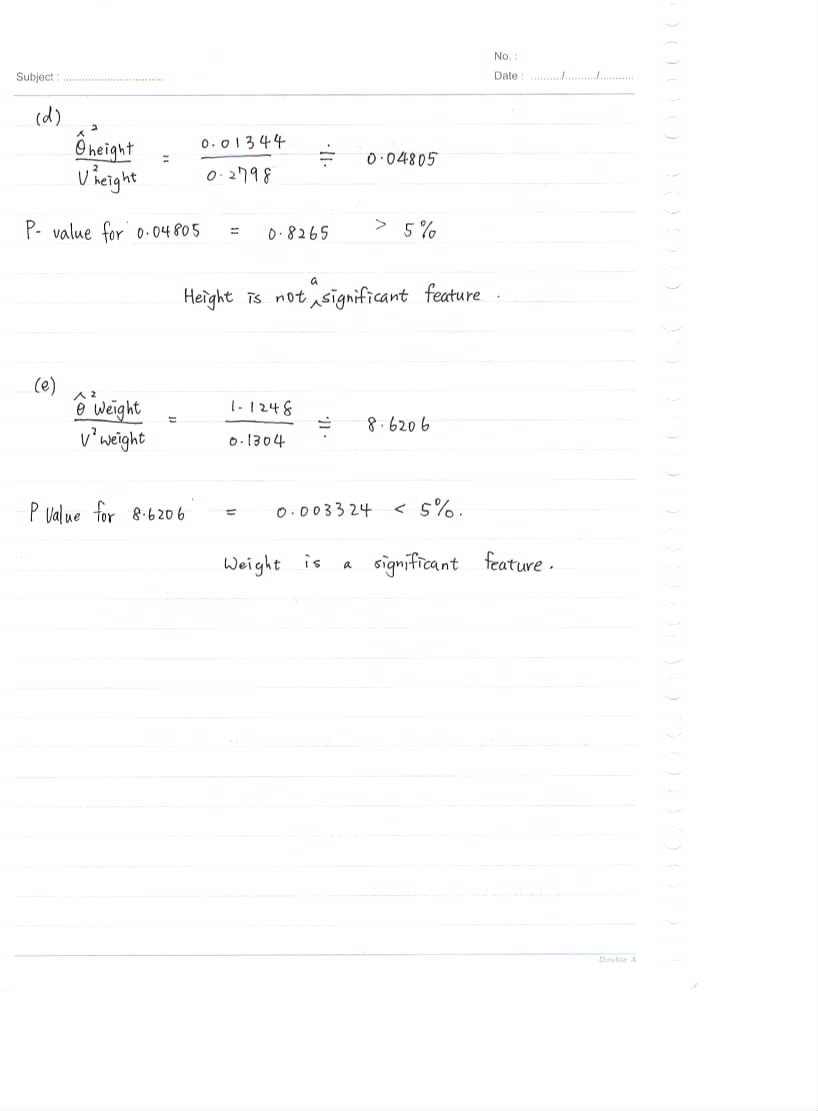 No. :
Subject : ................................ Date : ........../........../...........
(d)
θ̂²height / V²height = 0.01344 / 0.2798 ≑ 0.04805
P- value for 0.04805 = 0.8265 > 5%
Height is not ^a significant feature .
(e)
θ̂²weight / V²weight = 1.1248 / 0.1304 ≑ 8.6206
P Value for 8.6206 = 0.003324 < 5%.
Weight is a significant feature.
Double A